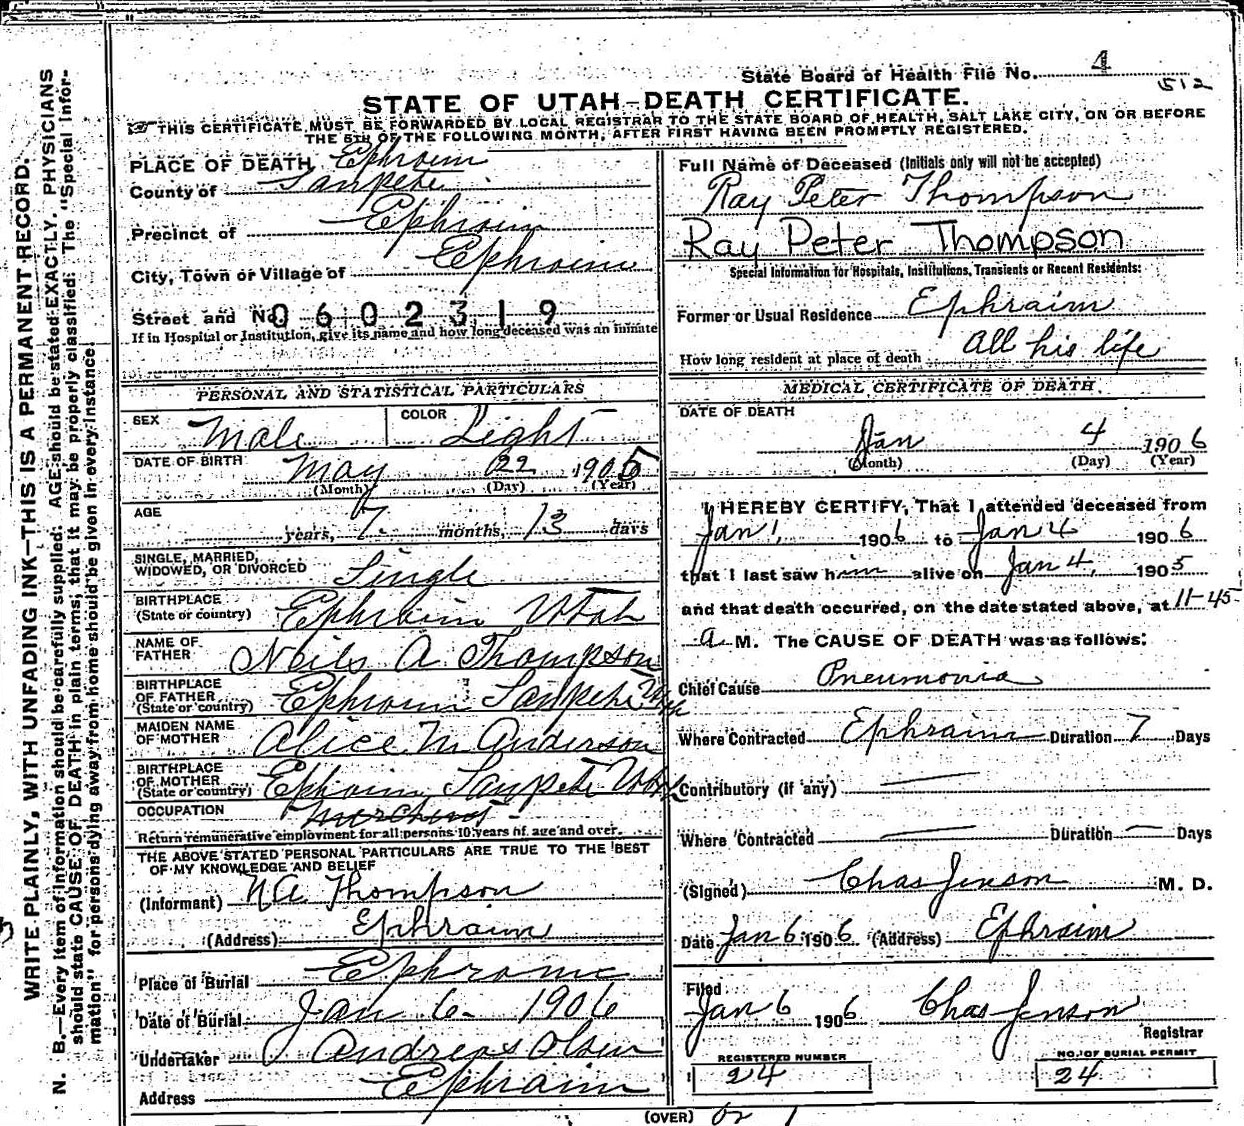 State Board of Health File No. 4
512
STATE OF UTAH—DEATH CERTIFICATE.
THIS CERTIFICATE MUST BE FORWARDED BY LOCAL REGISTRAR TO THE STATE BOARD OF HEALTH, SALT LAKE CITY, ON OR BEFORE
THE 5TH OF THE FOLLOWING MONTH, AFTER FIRST HAVING BEEN PROMPTLY REGISTERED.
PLACE OF DEATH Ephraim
County of Sanpete
Precinct of Ephraim
City, Town or Village of Ephraim
Street and No. 0602319
If in Hospital or Institution, give its name and how long deceased was an inmate
PERSONAL AND STATISTICAL PARTICULARS
SEX Male COLOR Light
DATE OF BIRTH May 22 1905
(Month) (Day) (Year)
AGE years, 7 months, 13 days
SINGLE, MARRIED,
WIDOWED, OR DIVORCED Single
BIRTHPLACE
(State or country) Ephraim Utah
NAME OF
FATHER Neils A Thompson
BIRTHPLACE
OF FATHER
(State or country) Ephraim Sanpete Utah
MAIDEN NAME
OF MOTHER Alice M Anderson
BIRTHPLACE
OF MOTHER
(State or country) Ephraim Sanpete Utah
OCCUPATION
Return remunerative employment for all persons 10 years of age and over.
THE ABOVE STATED PERSONAL PARTICULARS ARE TRUE TO THE BEST
OF MY KNOWLEDGE AND BELIEF
(Informant) N A Thompson
(Address) Ephraim
Place of Burial Ephraim
Date of Burial Jan 6 - 1906
Undertaker Andreas Olsen
Address Ephraim
Full Name of Deceased (Initials only will not be accepted)
Ray Peter Thompson
Ray Peter Thompson
Special Information for Hospitals, Institutions, Transients or Recent Residents:
Former or Usual Residence Ephraim
How long resident at place of death All his life
MEDICAL CERTIFICATE OF DEATH
DATE OF DEATH
Jan 4 1906
(Month) (Day) (Year)
I HEREBY CERTIFY, That I attended deceased from
Jan 1, 1906 to Jan 4 1906
that I last saw him alive on Jan 4, 1905
and that death occurred, on the date stated above, at 11-45-
a M. The CAUSE OF DEATH was as follows:
Chief Cause Pneumonia
Where Contracted Ephraim Duration 7 Days
Contributory (If any) —
Where Contracted — Duration — Days
(Signed) Chas Jenson M. D.
Date Jan 6 1906 (Address) Ephraim
Filed
Jan 6 1906 Chas Jenson
Registrar
REGISTERED NUMBER
24
NO. OF BURIAL PERMIT
24
(OVER)
WRITE PLAINLY, WITH UNFADING INK—THIS IS A PERMANENT RECORD.
N. B.—Every item of information should be carefully supplied. AGE should be stated EXACTLY. PHYSICIANS
should state CAUSE OF DEATH in plain terms, that it may be properly classified. The "Special Infor-
mation" for persons dying away from home should be given in every instance.